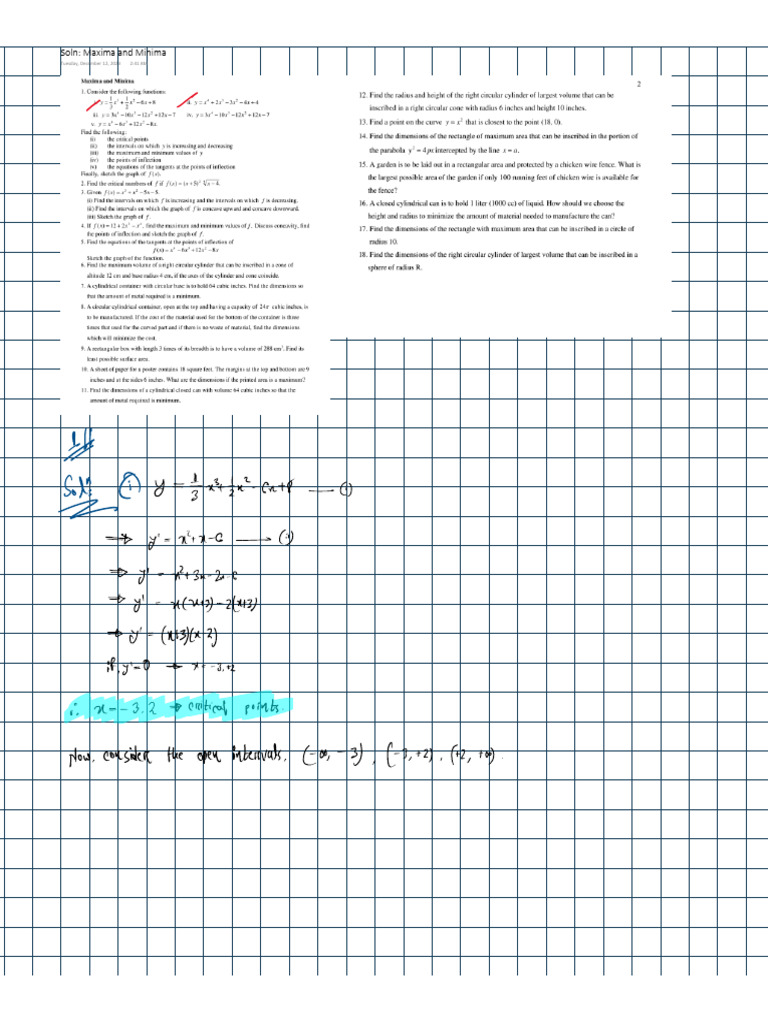 Soln: Maxima and Minima
Tuesday, December 12,
Maxima and Minima
1. Consider the following functions:
i. y = 1/3 x³ + 1/2 x² − 6x + 8 ii. y = x⁴ + 2x³ − 3x² − 4x + 4
iii. y = 3x⁴ − 10x³ − 12x² + 12x − 7 iv. y = 3x⁴ − 10x³ − 12x² + 12x − 7
v. y = x⁴ − 6x³ + 12x² − 8x
Find the following:
(i) the critical points
(ii) the intervals on which y is increasing and decreasing
(iii) the maximum and minimum values of y
(iv) the points of inflection
(v) the equations of the tangents at the points of inflection
Finally, sketch the graph of f(x).
2. Find the critical numbers of f if f(x) = (x + 5)²
3. Given f(x) = x³ + x² − 5x − 5.
(i) Find the intervals on which f is increasing and the intervals on which f is decreasing.
(ii) Find the intervals on which the graph of f is concave upward and concave downward.
(iii) Sketch the graph of f.
4. If f(x) = 12 + 2x² − x⁴, find the maximum and minimum values of f. Discuss concavity, find
the points of inflection and sketch the graph of f.
5. Find the equations of the tangents at the points of inflection of
f(x) = x⁴ − 6x³ + 12x² − 8x
Sketch the graph of the function.
6. Find the maximum volume of a right circular cylinder that can be inscribed in a cone of
altitude 12 cm and base radius 4 cm, if the axes of the cylinder and cone coincide.
7. A cylindrical container with circular base is to hold 64 cubic inches. Find the dimensions so
that the amount of metal required is a minimum.
8. A circular cylindrical container, open at the top and having a capacity of 24π cubic inches, is
to be manufactured. If the cost of the material used for the bottom of the container is three
times that used for the curved part and if there is no waste of material, find the dimensions
which will minimize the cost.
9. A rectangular box with length 3 times of its breadth is to have a volume of 288 cm³. Find its
least possible surface area.
10. A sheet of paper for a poster contains 18 square feet. The margins at the top and bottom are 9
inches and at the sides 6 inches. What are the dimensions if the printed area is a maximum?
11. Find the dimensions of a cylindrical closed can with volume 64 cubic inches so that the
amount of metal required is minimum.
2
12. Find the radius and height of the right circular cylinder of largest volume that can be
inscribed in a right circular cone with radius 6 inches and height 10 inches.
13. Find a point on the curve y = x² that is closest to the point (18, 0).
14. Find the dimensions of the rectangle of maximum area that can be inscribed in the portion of
the parabola y² = 4px intercepted by the line x = a.
15. A garden is to be laid out in a rectangular area and protected by a chicken wire fence. What is
the largest possible area of the garden if only 100 running feet of chicken wire is available for
the fence?
16. A closed cylindrical can is to hold 1 liter (1000 cc) of liquid. How should we choose the
height and radius to minimize the amount of material needed to manufacture the can?
17. Find the dimensions of the rectangle with maximum area that can be inscribed in a circle of
radius 10.
18. Find the dimensions of the right circular cylinder of largest volume that can be inscribed in a
sphere of radius R.
1
Sol: (i) y = 1/3 x³ + 1/2 x² - 6x + 8 — (i)
⇒ y' = x² + x - 6 → (ii)
⇒ y' = x² + 3x - 2x - 6
⇒ y' = x(x+3) - 2(x+3)
⇒ y' = (x+3)(x-2)
if, y' = 0 → x = -3, +2
∴ x = -3, 2 → critical points.
Now, consider the open intervals, (-∞, -3), (-3, +2), (+2, +∞).